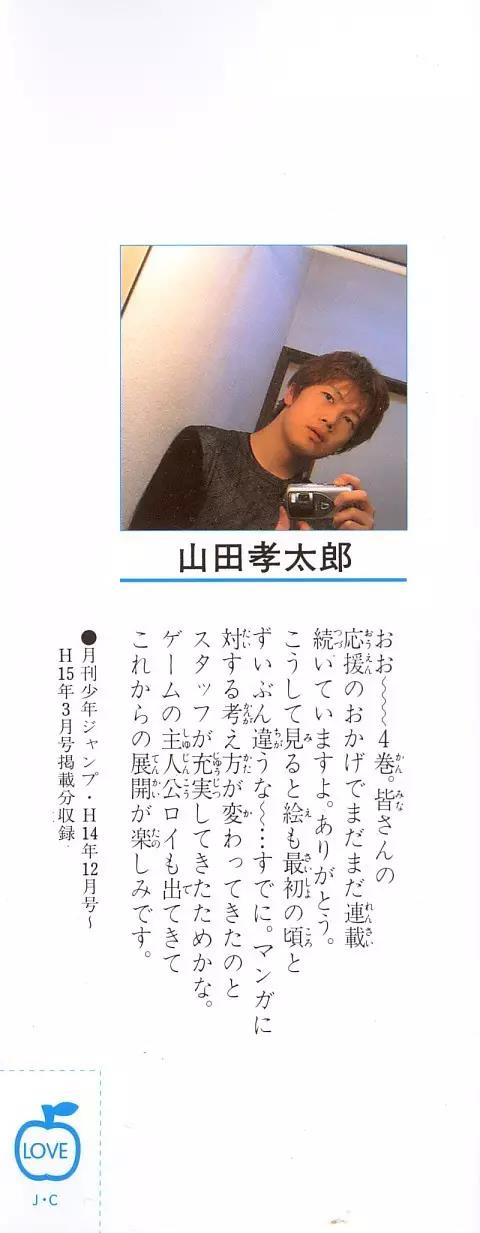 山田孝太郎
おお～～～4巻。皆さんの
応援のおかげでまだまだ連載
続いていますよ。ありがとう。
こうして見ると絵も最初の頃と
ずいぶん違うな～…すでに。マンガに
対する考え方が変わってきたのと
スタッフが充実してきたためかな。
ゲームの主人公ロイも出てきて
これからの展開が楽しみです。
●月刊少年ジャンプ・H14年12月号～
H15年3月号掲載分収録
LOVE
J・C